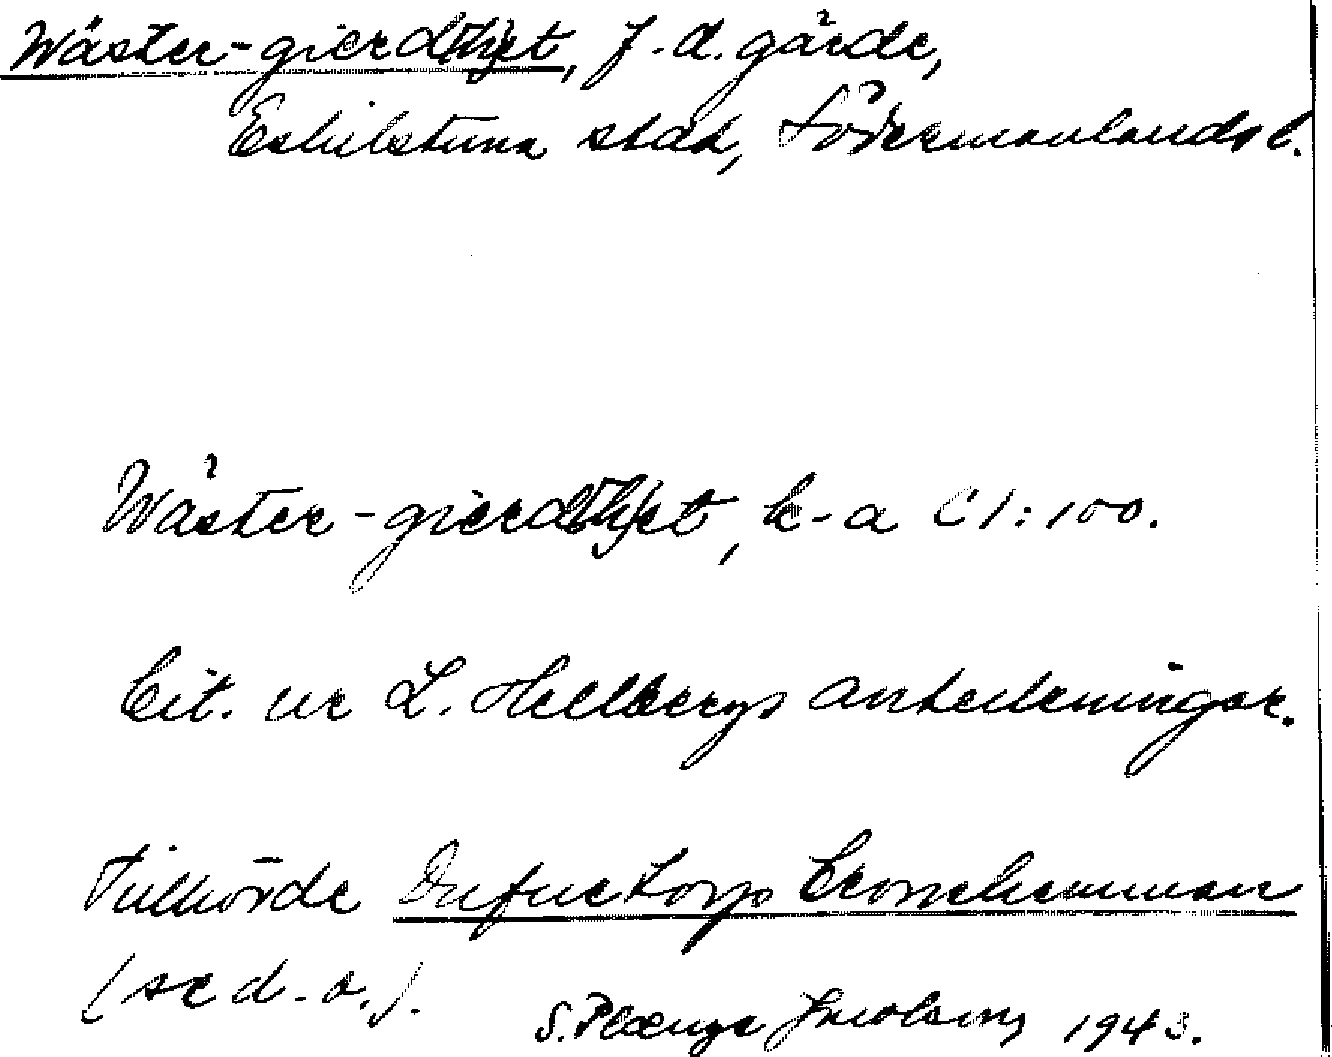 Wäster-gierdthet, f.d. gärde,
Eskilstuna stad, Södermanlands l.
Wäster-gierdthet, k-a C1:100.
Cit. ur L. Hellbergs anteckningar.
Tillhörde Dufuetorp Cronehemman
(se d.o.).
S. Plænge Jacobson, 1943.